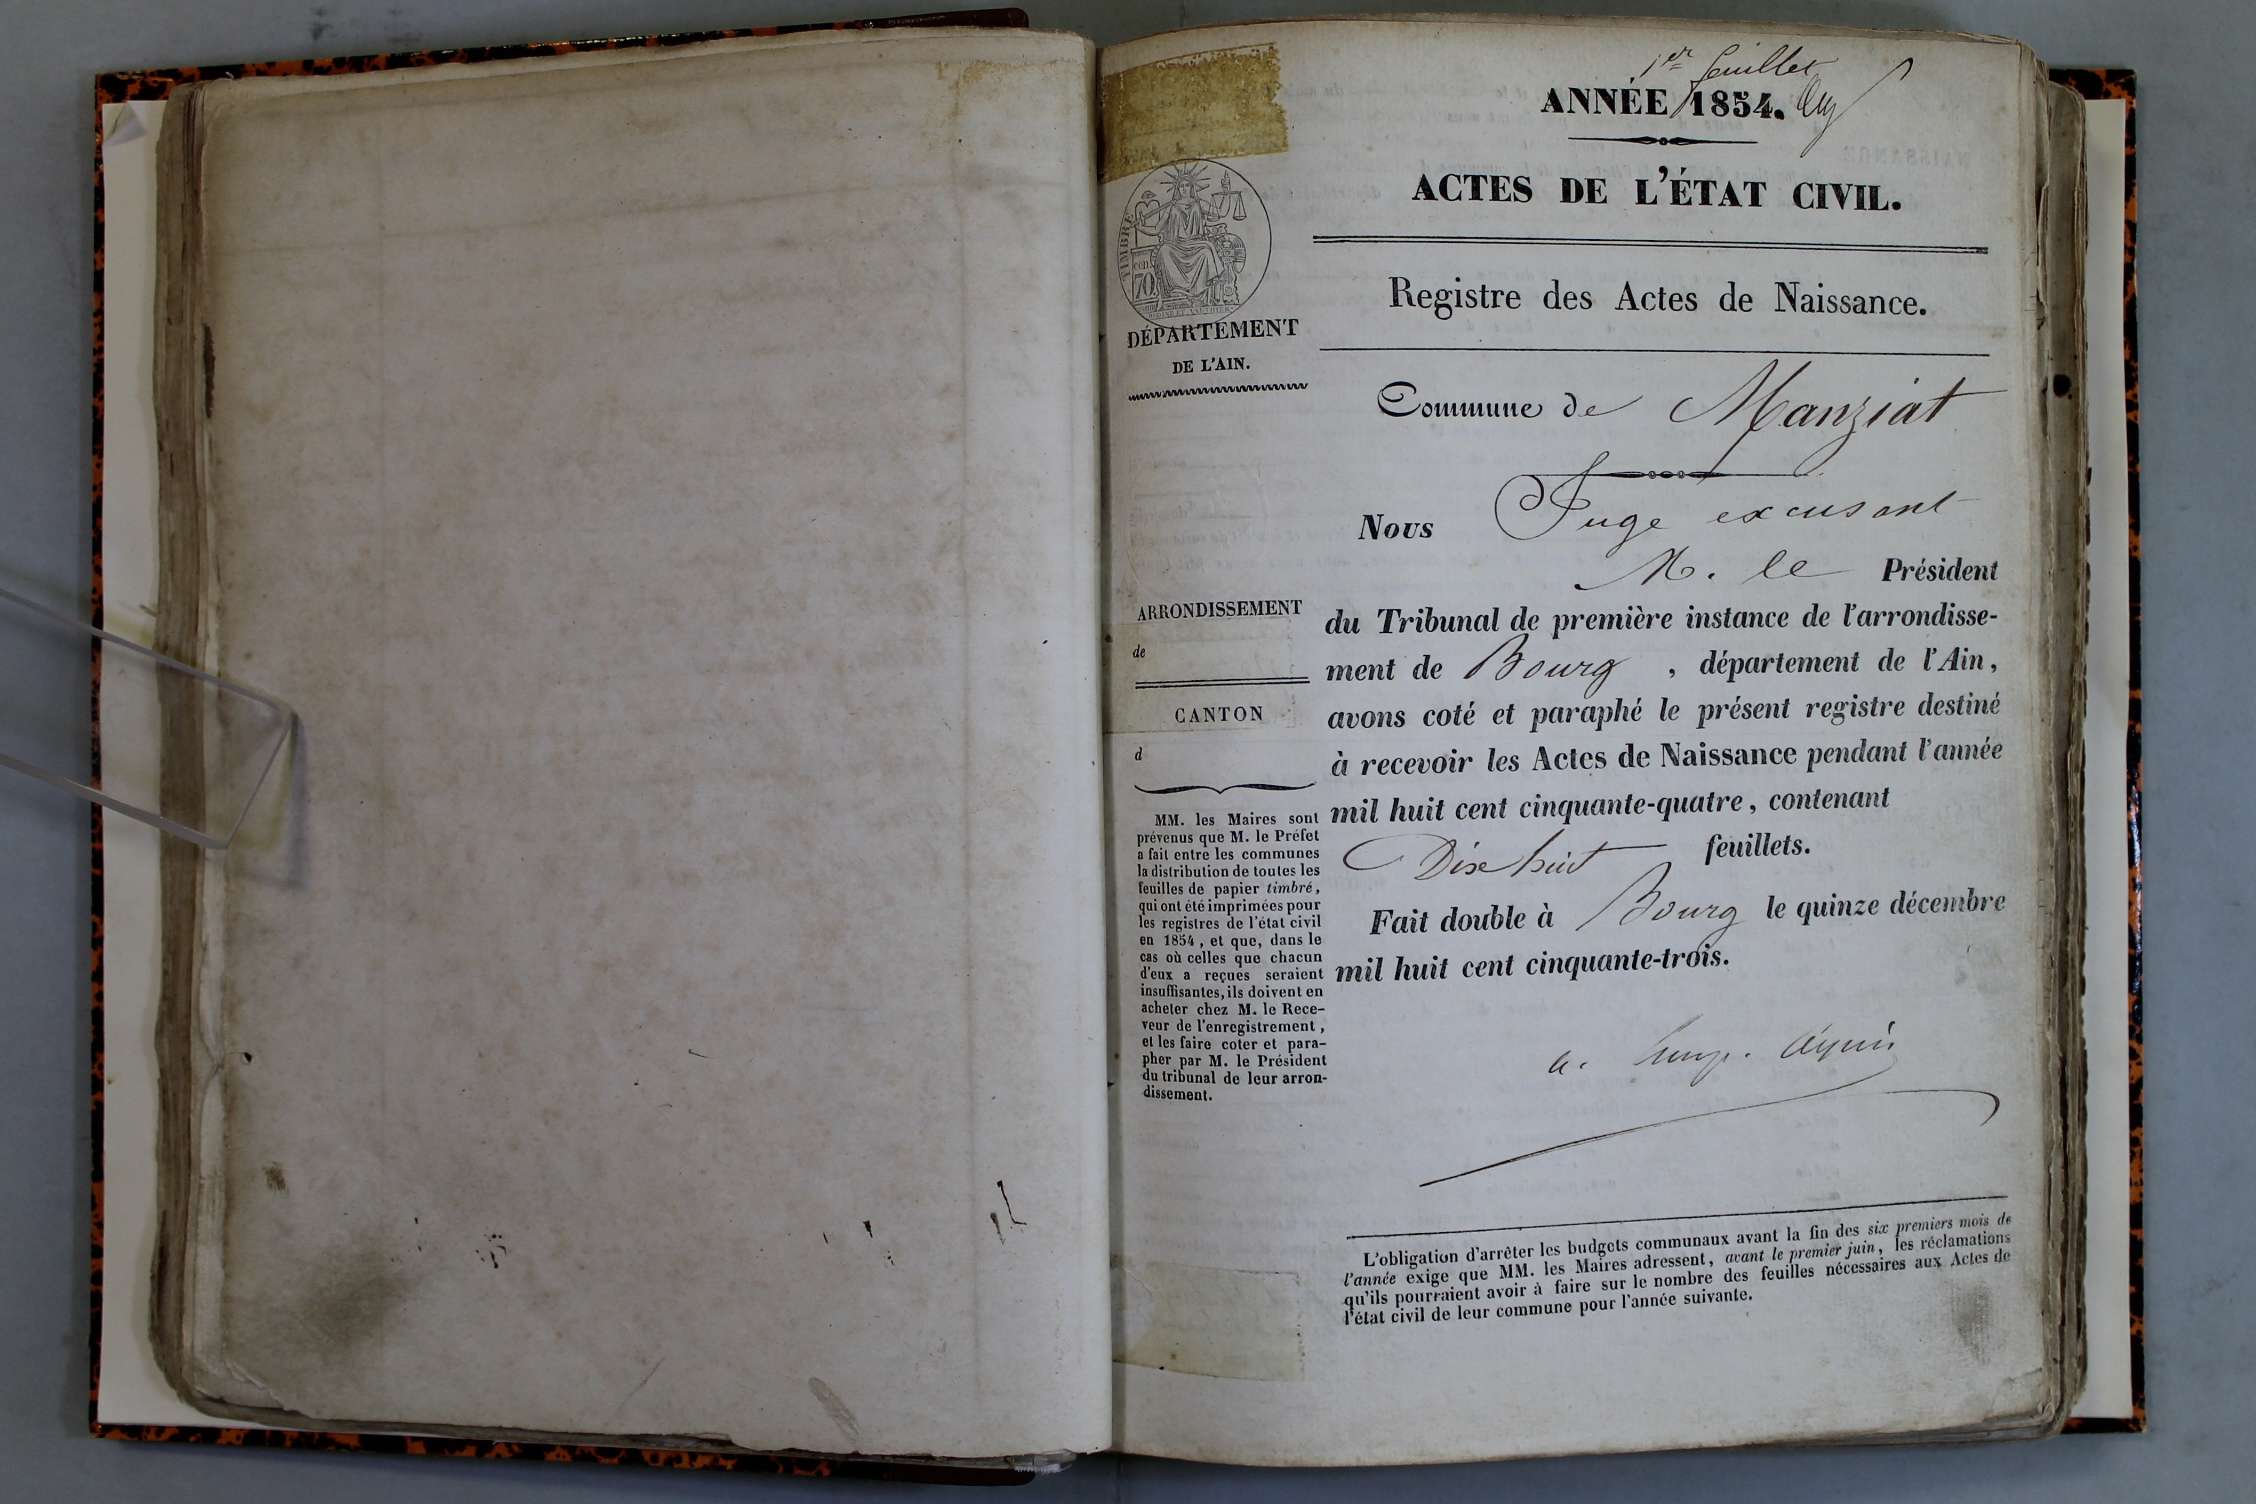 1er feuillet
ANNÉE 1854.
ACTES DE L'ÉTAT CIVIL.
Registre des Actes de Naissance.
TIMBRE
cen.
70
DÉPARTEMENT
DE L'AIN.
Commune de Manziat
Nous Juge excusant
M. le Président
du Tribunal de première instance de l'arrondisse-
ment de Bourg , département de l'Ain,
avons coté et paraphé le présent registre destiné
à recevoir les Actes de Naissance pendant l'année
mil huit cent cinquante-quatre, contenant
Dix huit feuillets.
Fait double à Bourg le quinze décembre
mil huit cent cinquante-trois.
ARRONDISSEMENT
de
CANTON
d
MM. les Maires sont
prévenus que M. le Préfet
a fait entre les communes
la distribution de toutes les
feuilles de papier timbré,
qui ont été imprimées pour
les registres de l'état civil
en 1854, et que, dans le
cas où celles que chacun
d'eux a reçues seraient
insuffisantes, ils doivent en
acheter chez M. le Rece-
veur de l'enregistrement,
et les faire coter et para-
pher par M. le Président
du tribunal de leur arron-
dissement.
L'obligation d'arrêter les budgets communaux avant la fin des six premiers mois de
l'année exige que MM. les Maires adressent, avant le premier juin, les réclamations
qu'ils pourraient avoir à faire sur le nombre des feuilles nécessaires aux Actes de
l'état civil de leur commune pour l'année suivante.